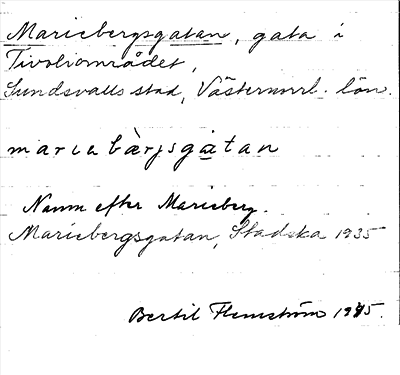 Mariebergsgatan, gata i
Tivoliområdet,
Sundsvalls stad, Västernorrl. län.
mariebàrjsgatan
Namn efter Marieberg.
Mariebergsgatan, Stadska 1935
Bertil Flemström 1945.